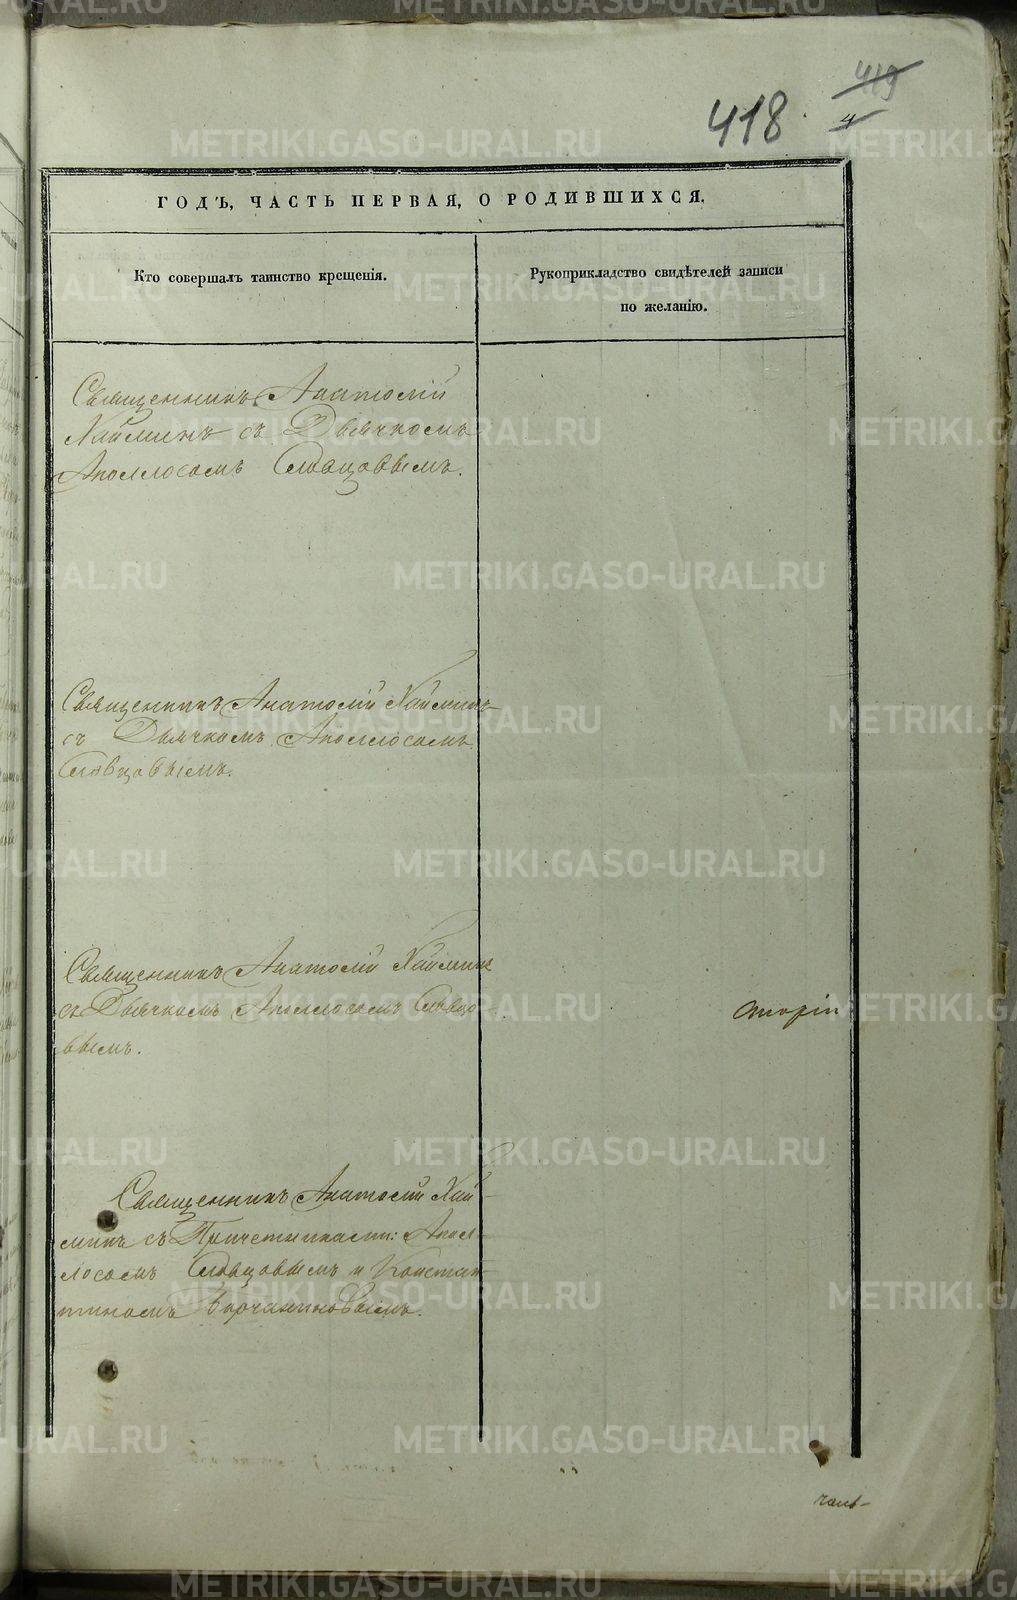 419
418.
4
ГОДЪ, ЧАСТЬ ПЕРВАЯ, О РОДИВШИХСЯ.
Кто совершалъ таинство крещенія.
Рукоприкладство свидѣтелей записи
по желанію.
Священникъ Анатолій
Хайминъ съ Дьячкомъ
Аполлосомъ Словцовымъ.
Священникъ Анатолій Хайминъ
съ Дьячкомъ Аполлосомъ
Словцовымъ.
Священникъ Анатолій Хайминъ
съ Дьячкомъ Аполлосомъ Словцо
вымъ.
Священникъ Анатолій Хай-
минъ съ Причетниками: Апол-
лосомъ Словцовымъ и Констан-
тиномъ
METRIKI.GASO-URAL.RU